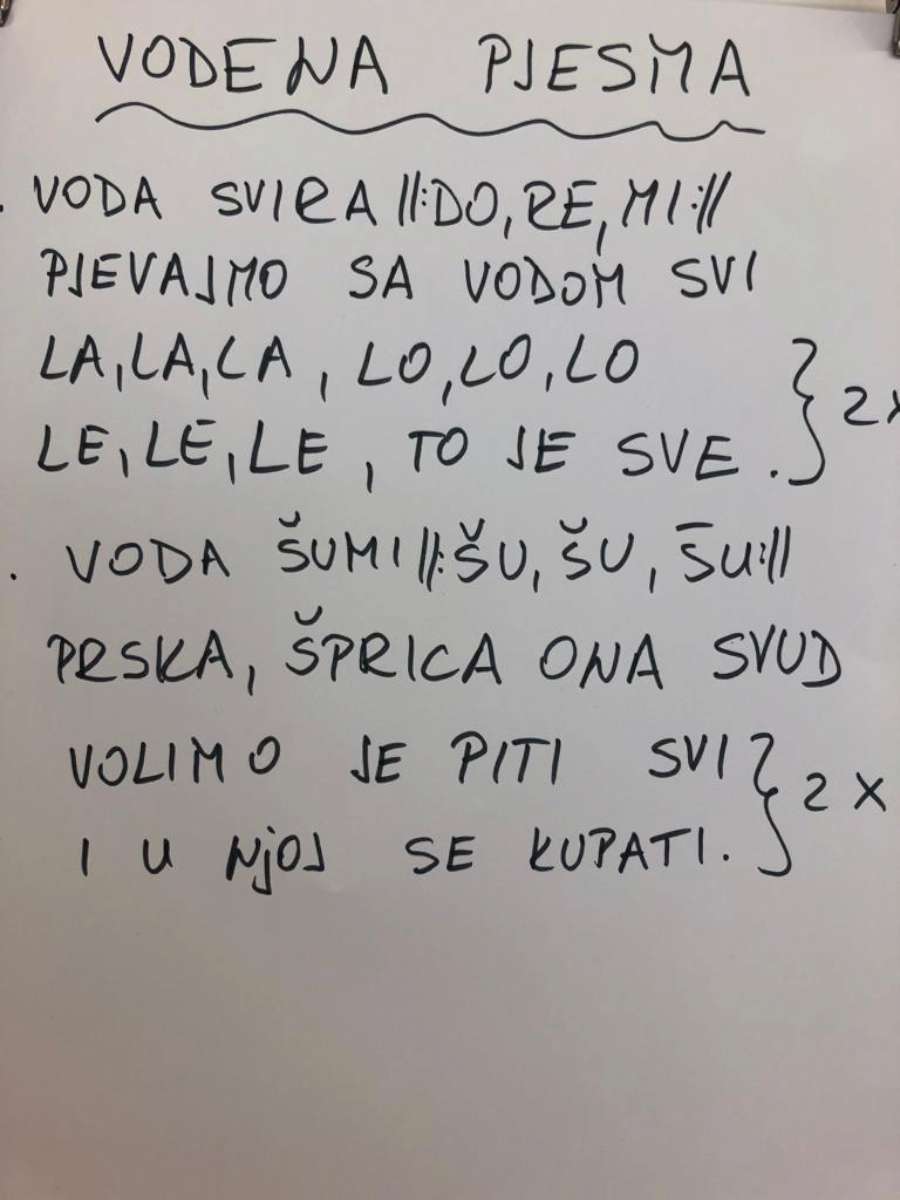 VODENA PJESMA
. VODA SVIRA ||:DO, RE, MI:||
PJEVAJMO SA VODOM SVI
LA, LA, LA, LO, LO, LO
LE, LE, LE, TO JE SVE. } 2x
. VODA ŠUMI ||:ŠU, ŠU, ŠU:||
PRSKA, ŠPRICA ONA SVUD
VOLIMO JE PITI SVI
I U NJOJ SE KUPATI. } 2 X